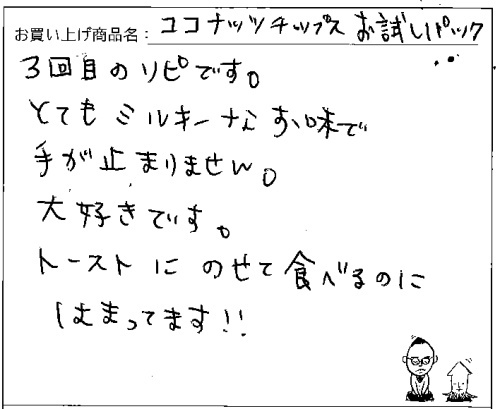 お買い上げ商品名：ココナッツチップス お試しパック
3回目のリピです。
とてもミルキーなお味で
手が止まりません。
大好きです。
トーストにのせて食べるのに
はまってます!!